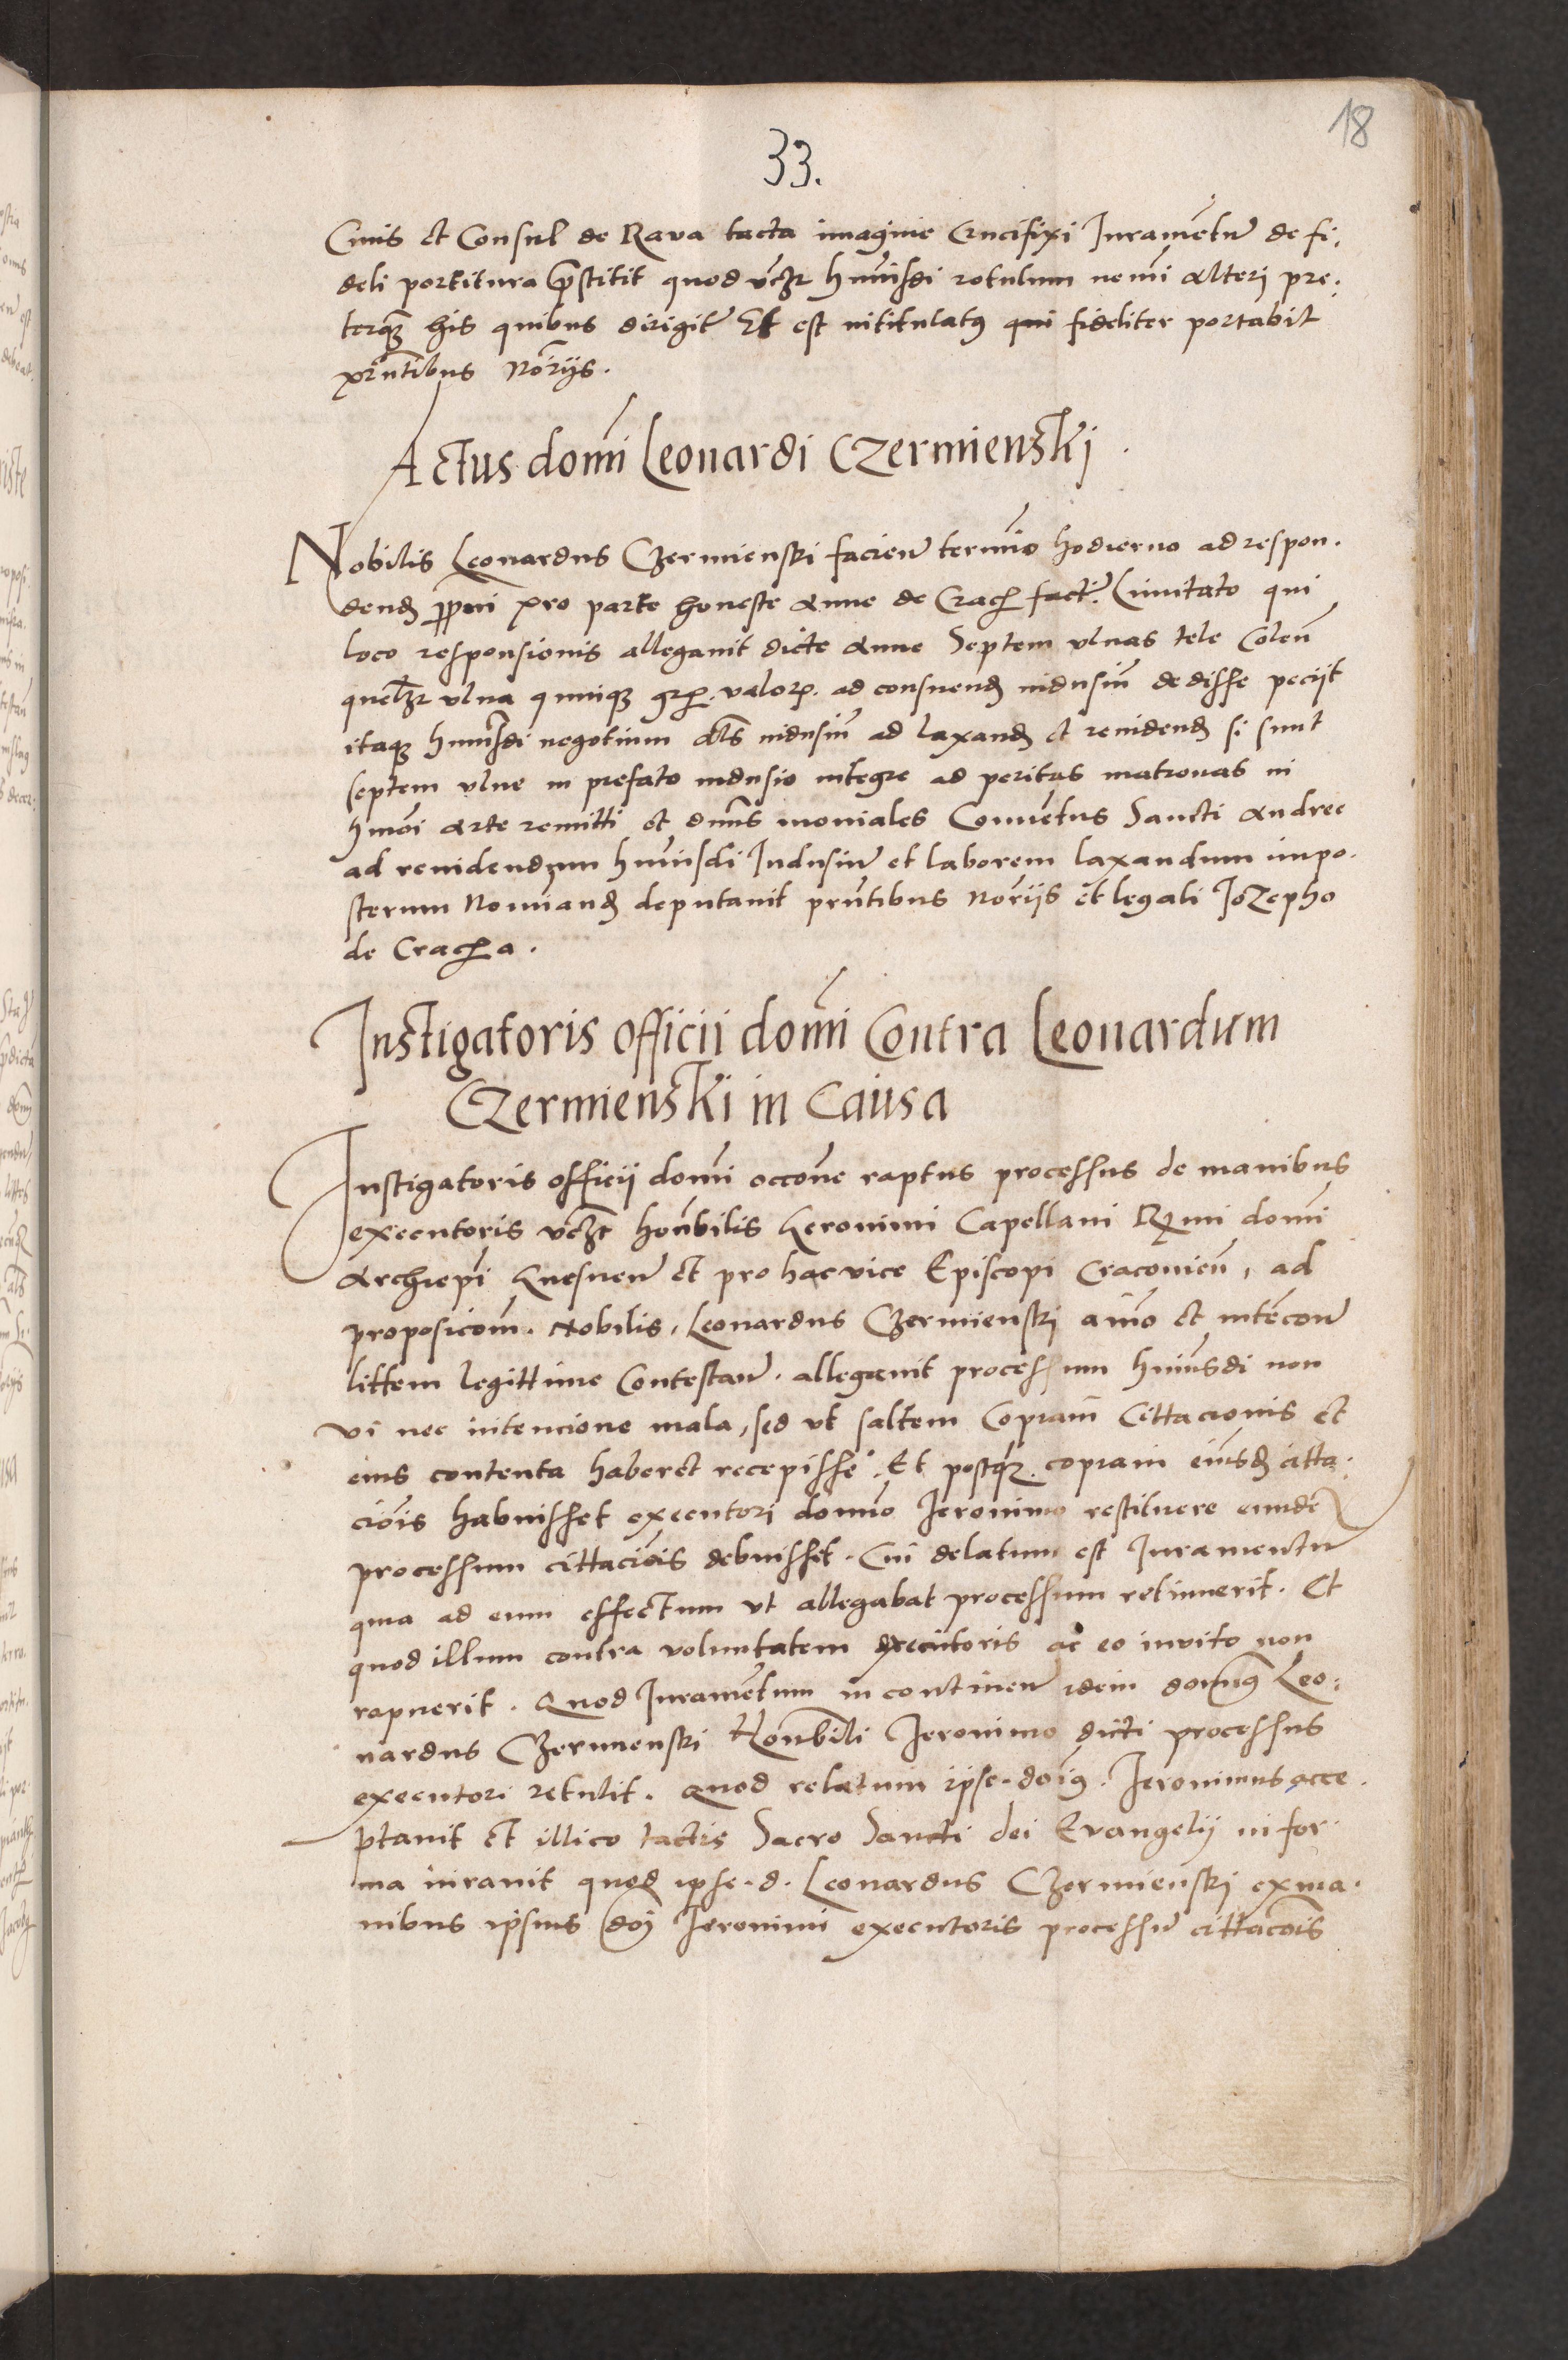 18
33.
Civis et Consul de Rava tacta imagine Crucifixi Juramentū de fi,
deli portitura p̄stitit quod vczr huiusdi rotulum nemi alteri pre,
terq̨ his quibus dirigitr Et est intitulatq qui fideliter portabit
prn̄tibus Norijs.
Actus domi Leonardi Czermienski
Nobilis Leonardus Czermienski facien termio hodierno ad respon.
dend pp̄ni pro parte honeste Anne de Crach factr Limitato qui
loco responsionis allegavit dicte Anne Septem ulnas tele Colen̄
quelzr ulna quinq̨ gr. valor. ad consuend indusiū dedisse peciit
itaq̨ huiusdi negotium als indusiū ad laxand et revidend si sunt
septem ulne in prefato indusio integre ad peritas matronas in
hmoi arte remitti et dnus moniales Conventus Sancti Andree
ad revidendum huiusdi Indusiū et laborem laxandum impo.
sterum Nominand deputavit prn̄tibus Norijs et legali Jozepho
de Crachа.
Instigatoris officii domi Contra Leonardum
Czermienski in Causa
Instigatoris officij domi occone raptus processus de manibus
executoris vczt honobilis Heronimi Capellani Rmi domi
Archiepi Gnesnen et pro hac vice Episcopi Cracovien̄, ad
proposicom. Nobilis. Leonardus Czermienski animo et intēcone
littem legittime Contestan̄. allegavit processum huiusdi non
vi nec intencione mala, sed ut saltem Copiam Cittacionis et
eius contenta haberet recepisse. Et postq̨ copiam eiusd citta.
ciōis habuisset executori domino Jeronimo restituere eundē
processum cittaciōis debuisset. Cui delatum est Juramentū
quia ad eum effectum ut allegabat processum retinuerit. Et
quod illum contra voluntatem executoris ac eo invito non
rapuerit. Quod Juramentum in continen̄ idem domnq Leo,
nardus Czermienski Honobili Jeronimo dicti processus
executori retulit. Quod relatum ipse doīq. Jeronimus acce.
ptavit et illico tactis Sacro Sancti dei Evangelij in for.
ma iuravit quod ipse. d. Leonardus Czermienski ex ma.
nibus ipsius doi Jeronimi executoris processū cittacōis